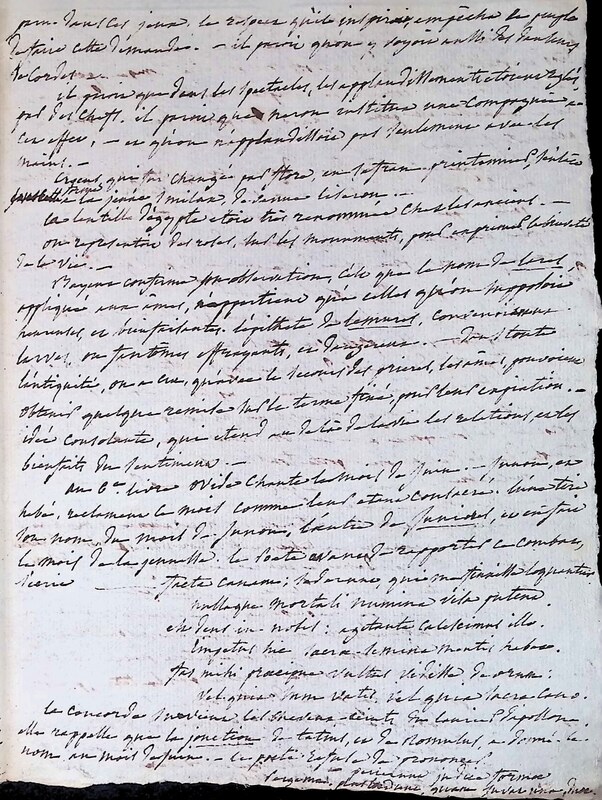 dans ces jeux. le respect qu'il inspirait empêcha le peuple
de faire cette demande. — il parait qu'on y voyoit aussi des danseurs
de Cordes. —
il parait que dans les spectacles, les applaudissements étoient réglés,
par des Chefs. il parait que neron institua une Compagnie à
cet effet, — et qu'on n'applaudissoit pas seulement avec les
mains. —
Crocus, qui fut changé par flore, en safran printanier,
la jeune Smilax, devenue liseron. —
la lentille d'égypte étoit très renommée chez les anciens. —
on représentoit des roses, sur les monuments, pour exprimer la brièveté
de la vie. —
Bayeux confirme son observation, c'est que le nom de
appliqué aux âmes, n'appartient qu'à celles qu'on supposoit
heureuses, et bienfaisantes. l'épithète de lemures, convenoit aux
larves, ou fantômes effrayants, et dangereux. — dans toute
l'antiquité, on a cru, qu'avec le secours des prières, les âmes, pouvoient
obtenir quelque remise sur le terme fixé, pour leur expiation. —
idée consolante, qui étend au delà de la vie les relations, et les
bienfaits du sentiment. —
Au 6e. livre Ovide chante le mois de Juin. — Junon, et
hébé, réclament ce mois comme leur étant consacré. l'une tire
son nom, du mois de junon, l'autre de Juniores, et en fait
le mois de la jeunesse. le poète avant de rapporter ce combat,
s'écrie — facta canam; sed erunt qui me finxisse loquantur
nullaque mortali numina visa putent.
est deus in nobis: agitante calescimus illo.
impetus hic sacrae semina mentis habet.
fas mihi praecipue vultus vidisse deorum:
vel quia sum vates, vel quia sacra cano.
la concorde survient, les cheveux ceints du laurier d'Apollon.
elle rappelle que la jonction de tatius, et de Romulus, a donné le
nom au mois de juin. — ce poète refuse de prononcer.
judice forma
pergama, plus laedunt, quam juvat una, duae.